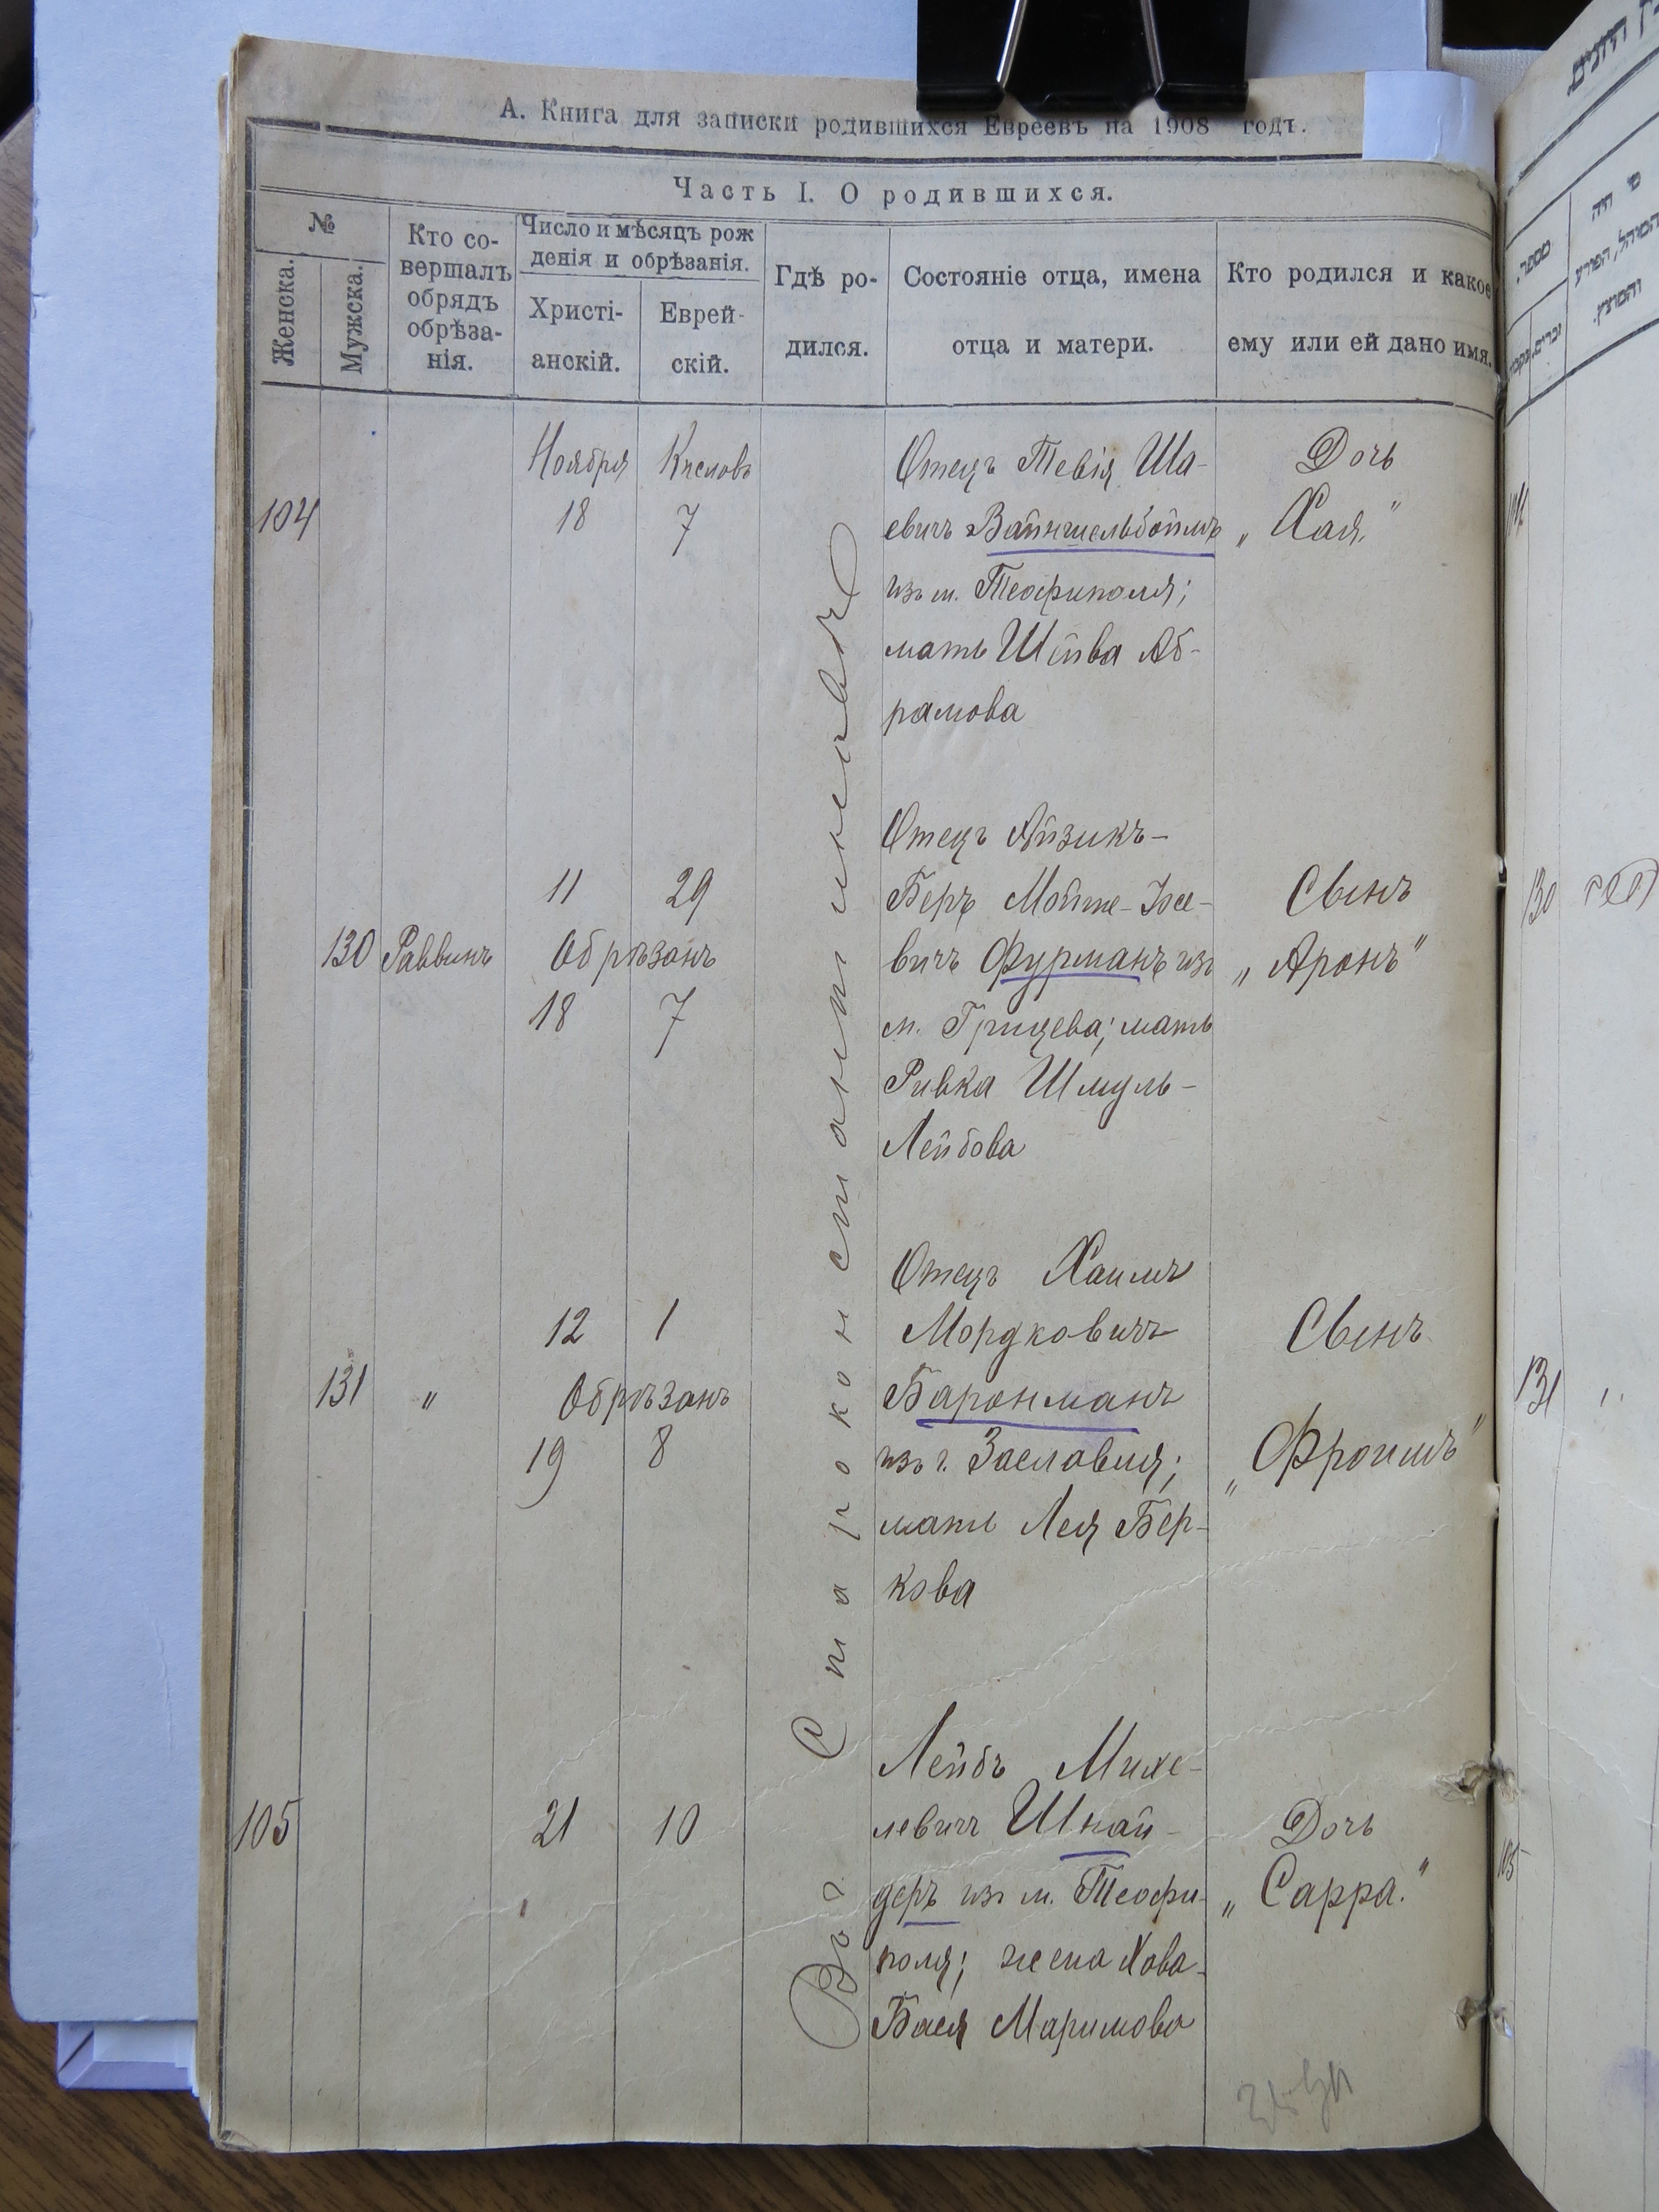 А. Книга для записки родившихся Евреевъ на 1908 годъ.
Часть I. О родившихся.
№
Женска.
Мужска.
Кто со-
вершалъ
обрядъ
обрѣза-
нія.
Число и мѣсяцъ рож
денія и обрѣзанія.
Христі-
анскій.
Еврей-
скій.
Гдѣ ро-
дился.
Состояніе отца, имена
отца и матери.
Кто родился и какое
ему или ей дано имя.
Въ г. Староконстантиновѣ
Ноября Кислевъ
104 18 7
Отецъ Тевія Ша-
евичъ Вайншельбоймъ
изъ м. Теофиполя;
мать Шейва Аб-
рамова
Дочь
„Хая.“
11 29
130 Раввинъ Обрѣзанъ
18 7
Отецъ Айзикъ-
Беръ Мойше-Іосе-
вичъ Фурманъ изъ
м. Грицева; мать
Ривка Шмуль-
Лейбова
Сынъ
„Аронъ“
12 1
131 „ Обрѣзанъ
19 8
Отецъ Хаимъ
Мордковичъ
Баронманъ
изъ г. Заславля;
мать Лея Бер-
кова
Сынъ
„Фроимъ“
105 21 10
Лейбъ Михе-
левичъ Шнай-
деръ изъ м. Теофи-
поля; жена Хова-
Бася Маримова
Дочь
„Сарра.“
מספר
130
131
105